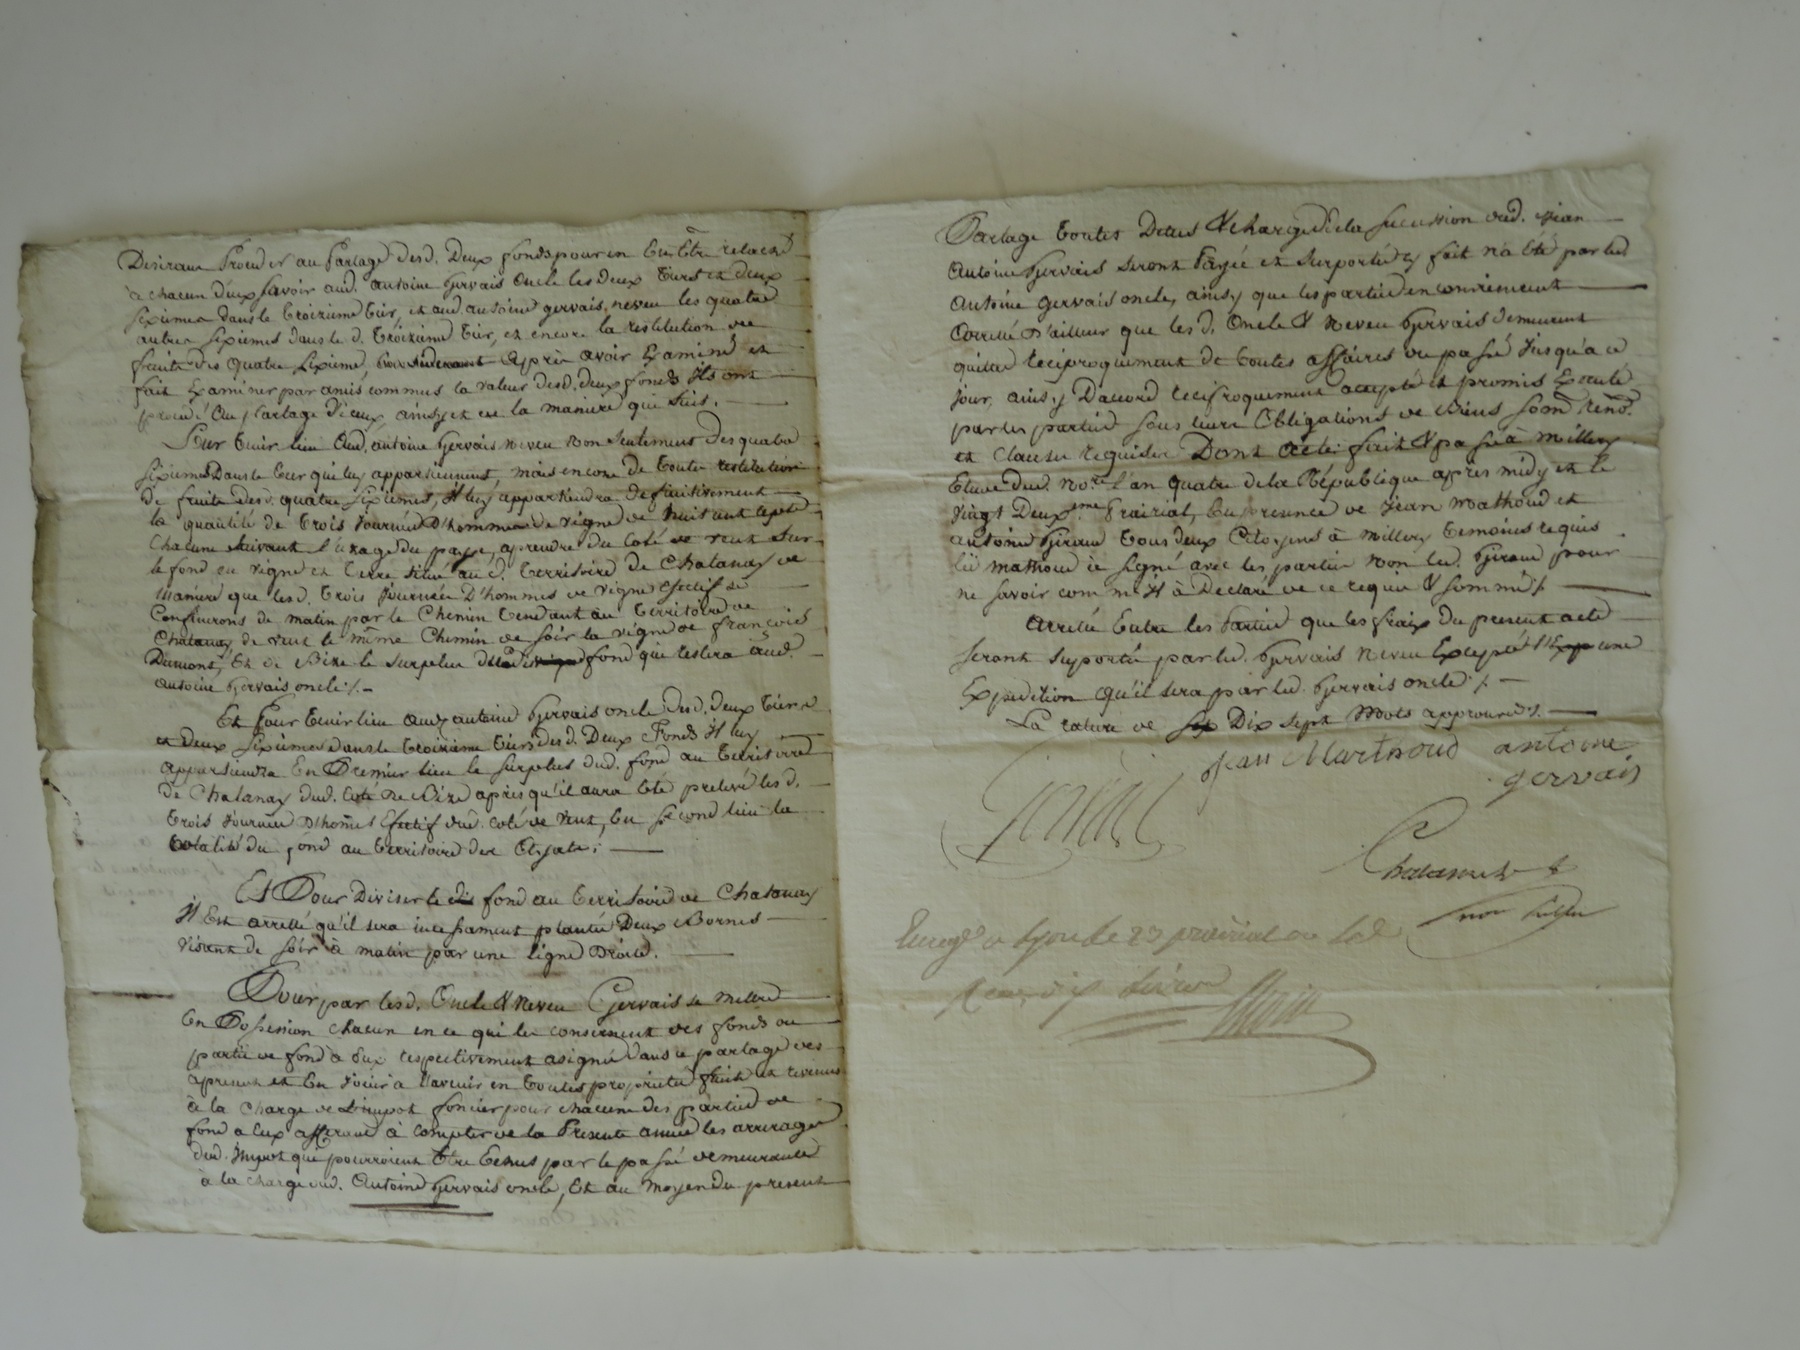 Desirant Proceder au Partage desd. Deux fonds pour en Être relaché
à chacun d'eux savoir aud. antoine Gervais Oncle les deux tiers et deux
sixiemes dans le troizieme tier, et aud. antoine gervais, neveu les quatre
autres sixiemes dans le d. troizieme tier, et encore la restitution des
fruits des quatre sixieme, Après avoir Examiné et
fait Examiner par amis commus la valeur desd. deux fonds Ils ont
procédé au Partage d'iceux, ainsy et de la maniere qui suit.
Pour tenir lieu Aud. antoine Gervais Neveu non seulement des quatre
sixiemes Dans le tier qui luy appartiennent, mais encore de toute restitution
de fruits desd. quatre sixiemes, Il luy appartiendra definitivement
la quantité de trois Journées d'hommes de vigne de huit cent seps
chacune suivant l'uzage du pays, aprendre du coté de vent sur
le fond en vigne et terre situé au d. territoire de Chatanay de
maniere que lesd. trois Journées D'hommes de vigne Efectif se
Confineront de matin par le Chemin tendant au territoire de
Chatanay, de vent le même Chemin de soir la vigne de françois
Dumont, Et de Bize le surplus dud. fond que restera aud.
antoine Gervais oncle /.
Et Pour tenir lieu aud. antoine Gervais oncle desd. deux tiers
et deux sixiemes dans le troizieme tiers desd. Deux Fonds Il luy
appartiendra En Premier lieu le surplus dud. fond au territoire
de Chatanay dud. Coté de Bize après qu'il aura Eté prelevé lesd.
trois Journées D'homes Efectif dud. coté de vent, En second lieu la
totalité du fond au territoire des
Et Pour Diviser le d. fond au territoire de Chatanay
Il Est arretté qu'il sera incessament planté Deux Bornes
visant de soir à matin par une ligne Droite.
Pour par lesd. Oncle & Neveu Gervais se mettre
En Possession chacun en ce qui les consernent des fonds ou
partie de fond à Eux respectivement asigné dans ce partage des
apresent et En Jouir à l'avenir en toutes propriété fruits et revenus
à la charge de L'impot foncier pour chacune des parties de
fond a Eux afferant à compter de la Presente année les arrerages
dud. Impot qui pourroient Etre Echus par le passé demeurants
à la charge dud. Antoine Gervais oncle, Et au moyen du present
Partage toutes Dettes & charges de la succession dud. Jean
Antoine Gervais seront Payée et suportés sy fait n'a Eté par led.
Antoine Gervais oncle, ainsy que les parties en conviennent
Arretté D'ailleur que les d. Oncle & Neveu Gervais demeurent
quitte reciproquement de toutes affaires du passé Jusqu'a ce
jour, ainsy D'accord reciproquement accepté et promis Executé
par les parties sous leurs Obligations de Biens soum. renon.
et clauses requises Dont acte fait & passé à Millery
Etude dud. No.re l'an quatre de la République apres midy et le
vingt Deux.eme Prairial, En presence de Jean Mathoud et
antoine Giraud tous deux Citoyens à Millery temoins requis
led. mathoud à signé avec les parties non led. Giraud pour
ne savoir comme Il à Declaré de ce requis & sommés /.
Arretté Entre les Parties que les fraix du present acte
seront suporté par led. Gervais Neveu Excepté une
Expedition qu'il sera par led. Gervais oncle /.
La rature de Dix sept Mots approuvés /.
Jean Marthoud antoine
gervais
Enreg.é a Lyon le 23 prairial an